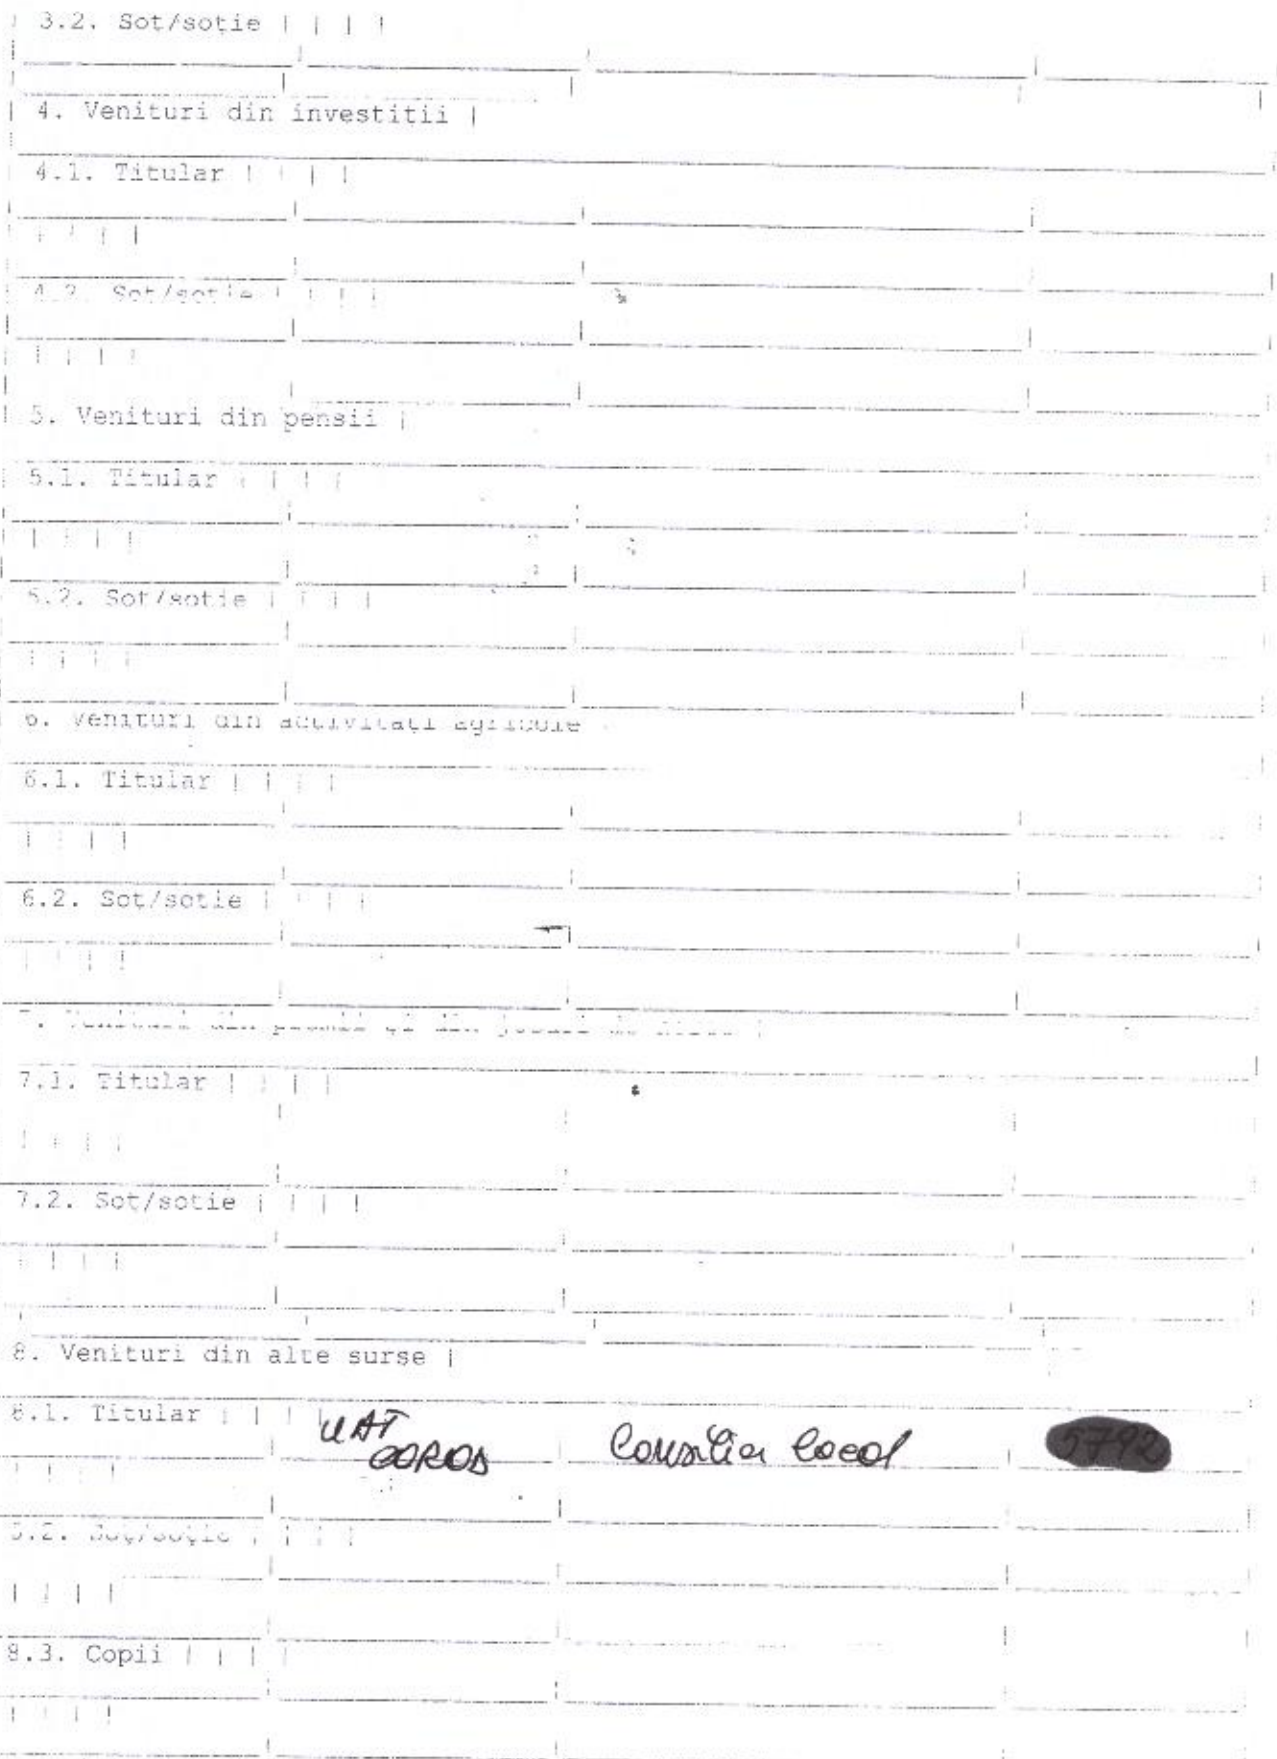 3.2. Sot/soție | | | |
4. Venituri din investitii |
4.1. Titular | | | |
4.2. Sot/sotie | | | |
5. Venituri din pensii |
5.1. Titular | | | |
5.2. Sot/sotie | | | |
6. Venituri din activitați agricole
6.1. Titular | | | |
6.2. Soț/soție | | | |
7.1. Titular | | | |
7.2. Soț/soție | | | |
8. Venituri din alte surse |
8.1. Titular | | | | UAT
COROD Consilier local
8.2. Soț/soție | | | |
8.3. Copii | | | |